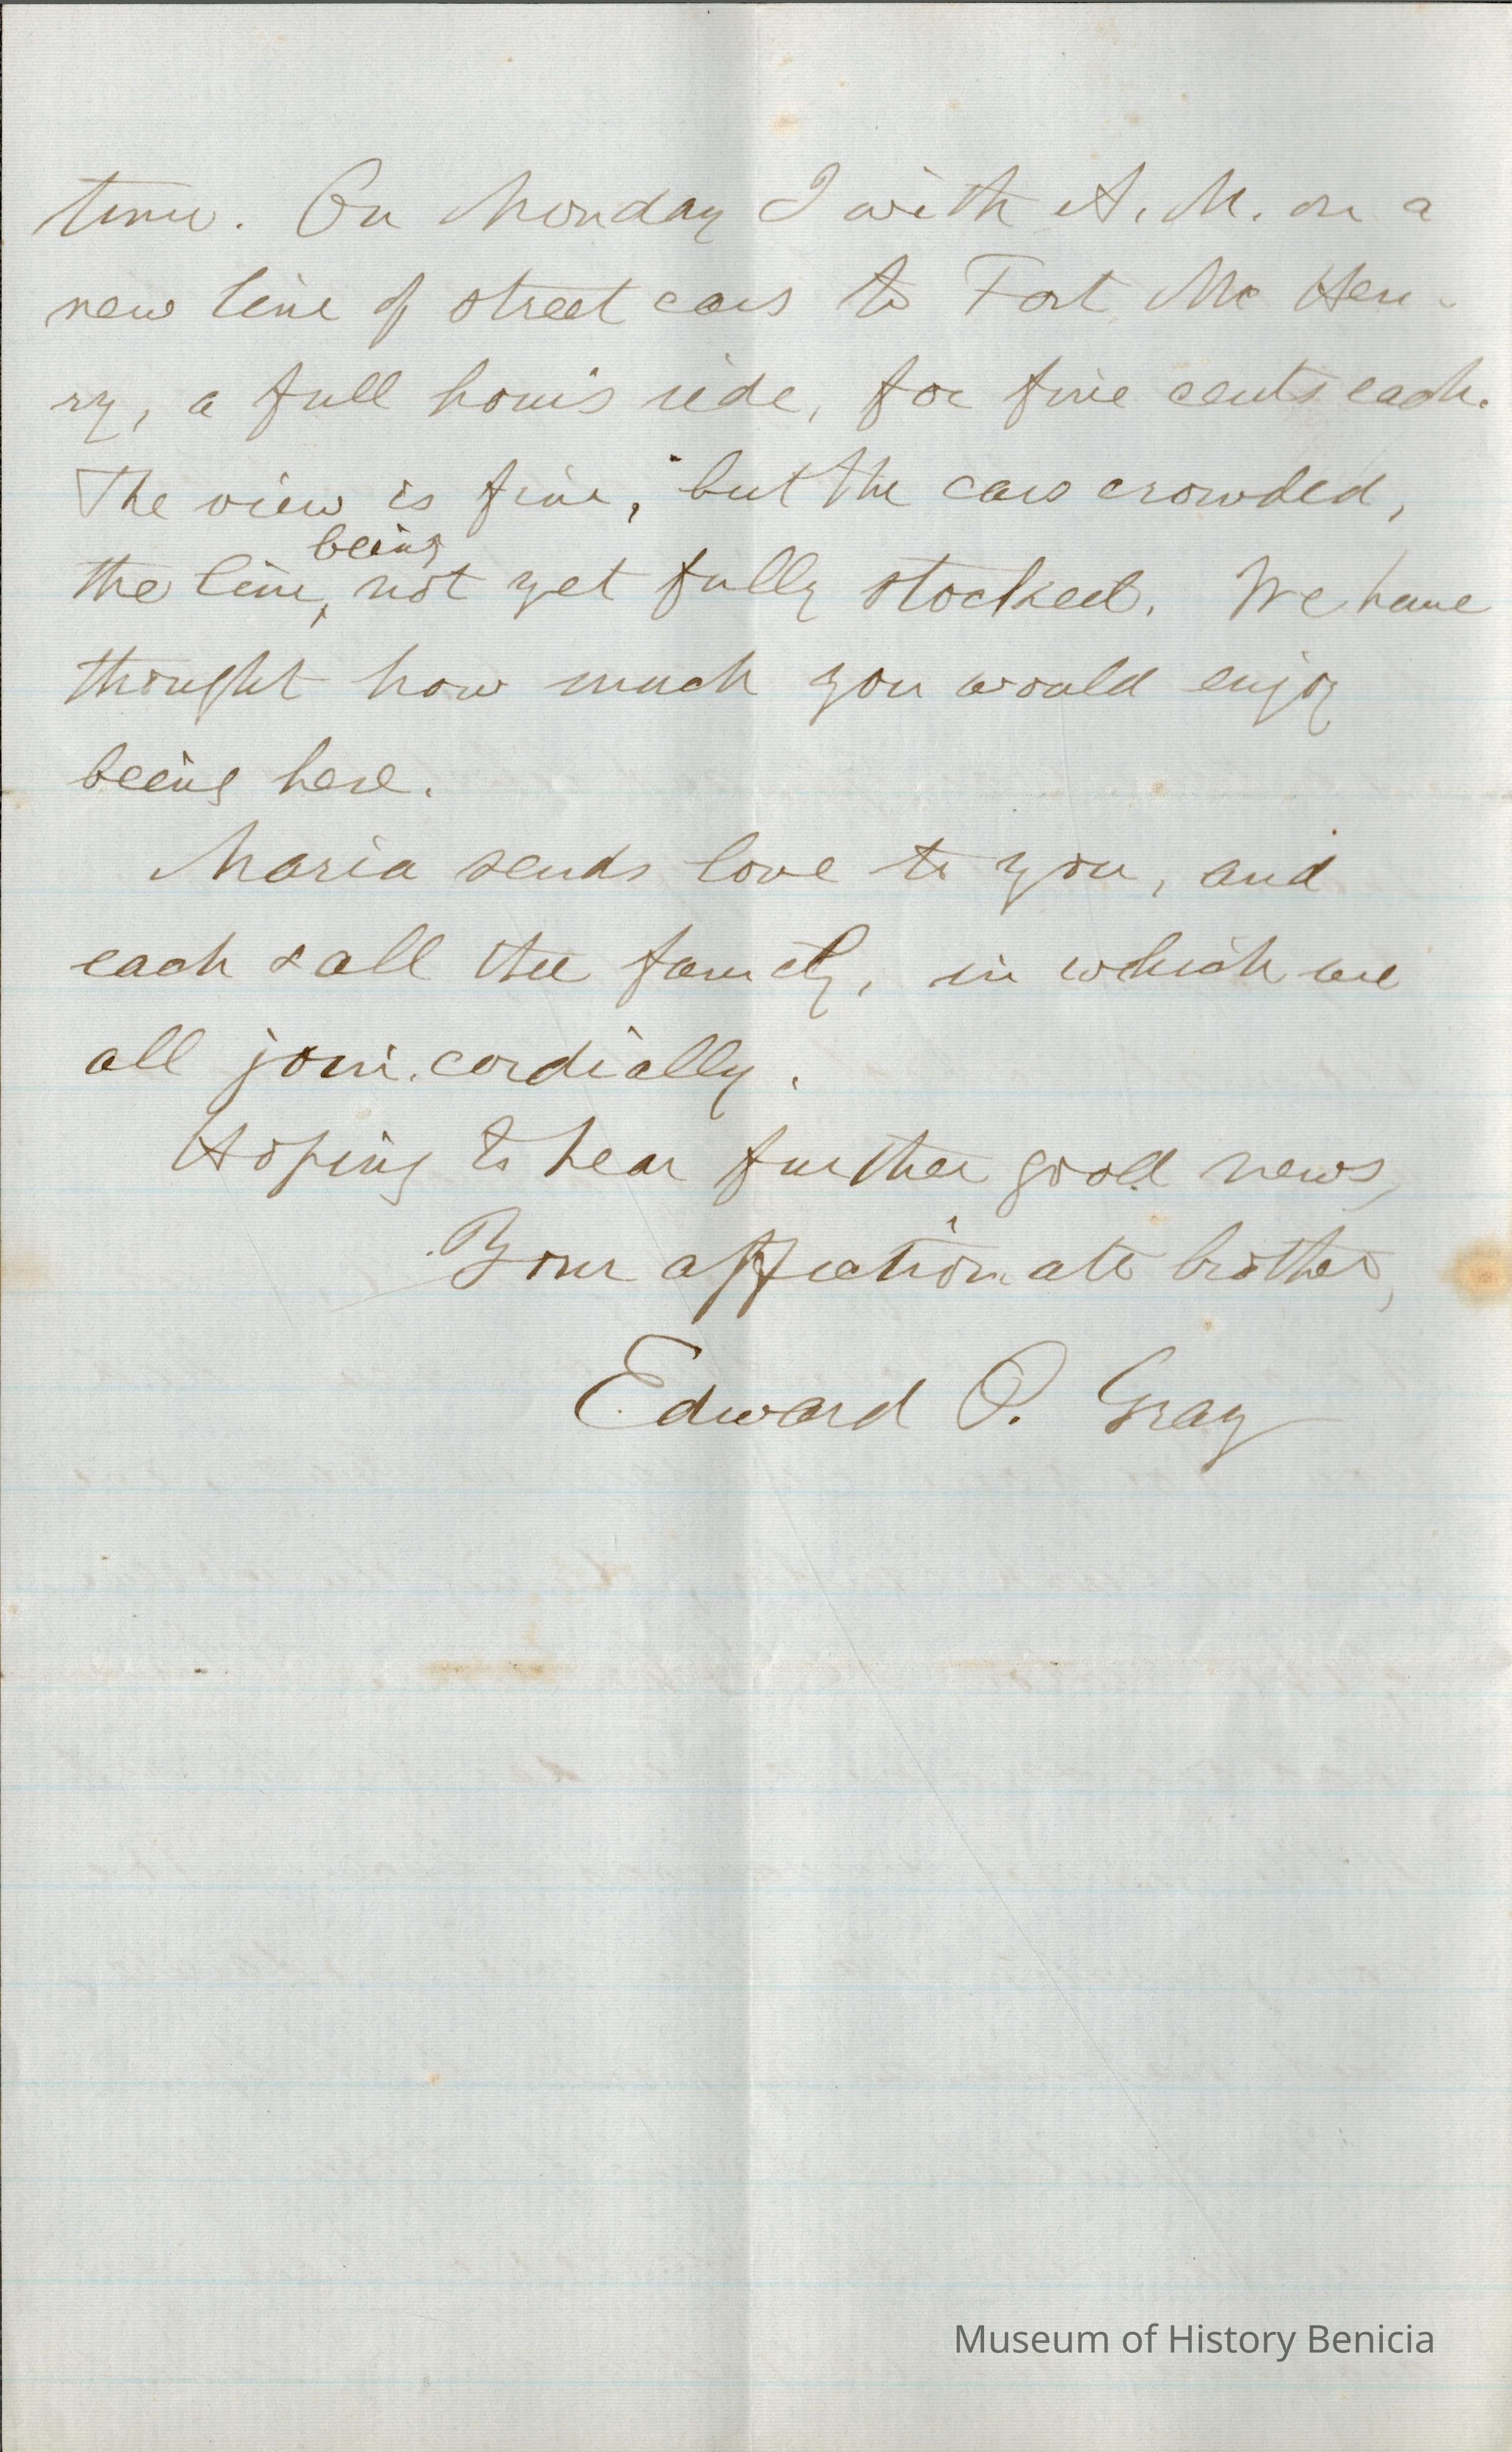 time. On Monday I with A. M. on a
new line of street cars to Fort Mc Hen-
ry, a full hour's ride, for five cents each.
The view is fine, but the cars crowded,
being
the line, not yet fully stocked. We have
thought how much you would enjoy
being here.
Maria sends love to you, and
each & all the family, in which we
all join cordially.
Hoping to hear further good news,
Your affectionate brother,
Edward P. Gray
Museum of History Benicia